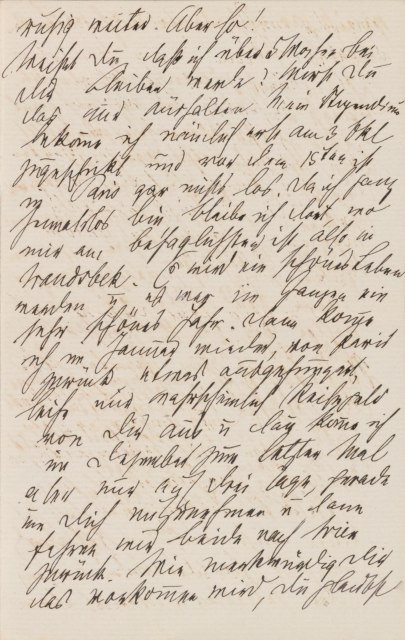 ruhig weiter. Aber so!
Weißt Du, daß ich über 5 Wochen bei
Dir bleiben werde? Wirst Du
das nur aushalten. Mein Stipendium
bekomme ich nämlich erst am 3 Okt
zugeschickt und vor dem 15ten ist
in Paris gar nichts los, da ich ganz
heimatlos bin bleibe ich dort wo
mir am behaglichsten ist also in
Wandsbek. Es wird ein schönes Leben
werden u. es war im ganzen ein
sehr schönes Jahr. Dann komme
ich im Januar wieder, von Paris
zurück etwas ausgehungert,
leihe mir wahrscheinlich Reisegeld
von Dir aus u dann komme ich
im Dezember zum letzten Mal
aber nur auf drei Tage gerade
um Dich mitzunehmen u dann
fahren wir beide nach Wien
zurück. Wie merkwürdig Dir
das vorkommen wird, Du glaubst